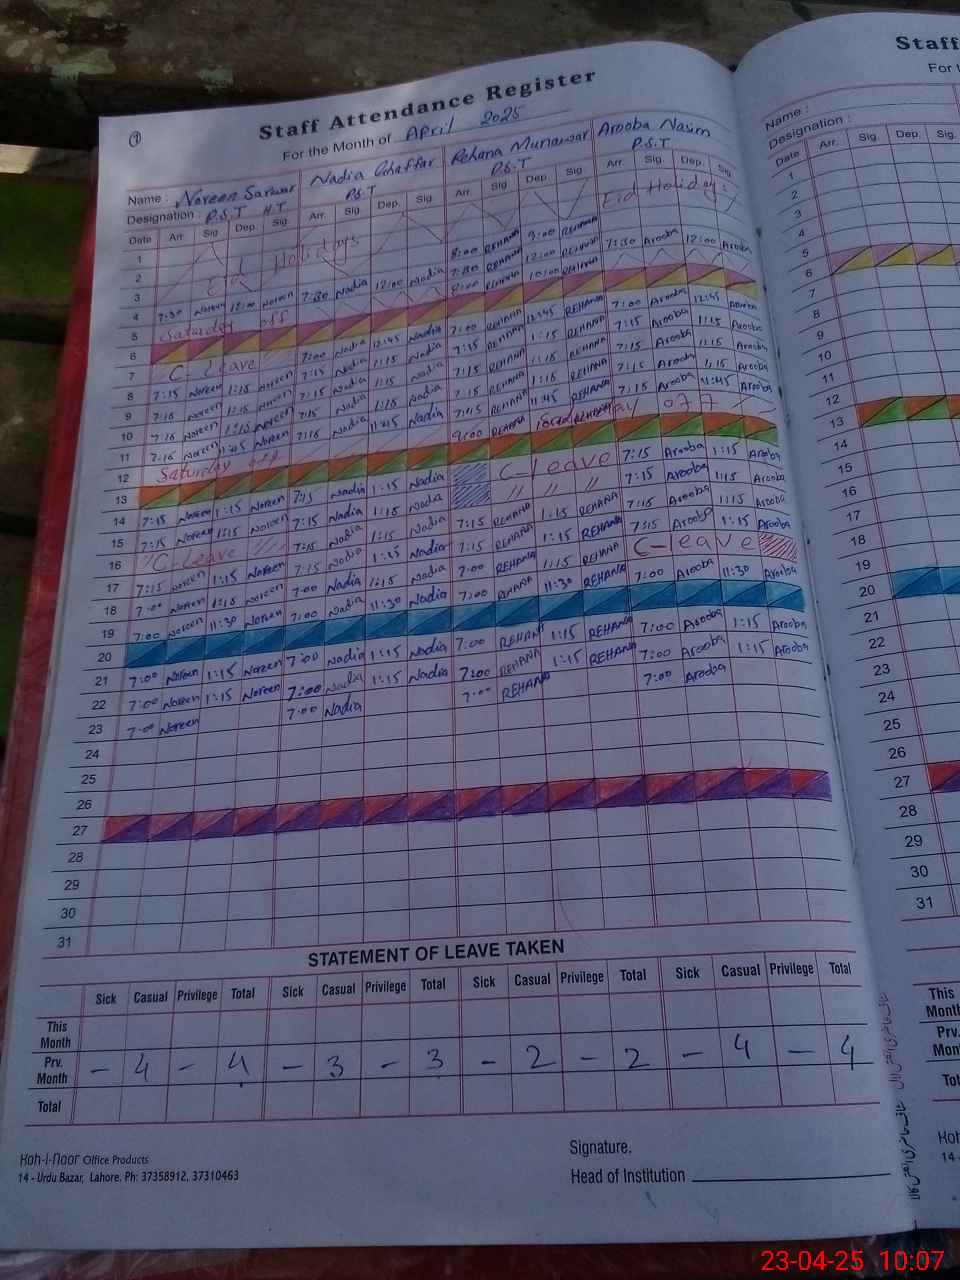 Staff Attendance Register
For the Month of April 2025
Name : Noreen Sarwar Nadia Ghaffar Rehana Munawar Arooba Nasim
Designation : P.S.T H.T P.S.T P.S.T P.S.T
Date Arr. Sig. Dep. Sig. Arr. Sig. Dep. Sig. Arr. Sig. Dep. Sig. Arr. Sig. Dep. Sig.
1 Eid Holidays
2 Eid Holidays 8:00 REHANA 9:00 REHANA
3 7:30 REHANA 12:00 REHANA
4 7:30 Noreen 12:00 Noreen 7:30 Nadia 12:00 Nadia 8:00 REHANA 10:00 REHANA 7:30 Arooba 12:00 Arooba
5 Saturday off
6
7 C-Leave 7:00 Nadia 12:45 Nadia 7:00 REHANA 12:45 REHANA 7:00 Arooba 12:45 Arooba
8 7:15 Noreen 1:15 Noreen 7:15 Nadia 1:15 Nadia 7:15 REHANA 1:15 REHANA 7:15 Arooba 1:15 Arooba
9 7:15 Noreen 1:15 Noreen 7:15 Nadia 1:15 Nadia 7:15 REHANA 1:15 REHANA 7:15 Arooba 1:15 Arooba
10 7:15 Noreen 1:15 Noreen 7:15 Nadia 1:15 Nadia 7:15 REHANA 1:15 REHANA 7:15 Arooba 1:15 Arooba
11 7:15 Noreen 11:45 Noreen 7:15 Nadia 11:45 Nadia 7:15 REHANA 11:45 REHANA 7:15 Arooba 11:45 Arooba
12 Saturday off 9:00 REHANA REHANA off
13
14 7:15 Noreen 1:15 Noreen 7:15 Nadia 1:15 Nadia C-Leave 7:15 Arooba 1:15 Arooba
15 7:15 Noreen 1:15 Noreen 7:15 Nadia 1:15 Nadia // // // 7:15 Arooba 1:15 Arooba
16 C-Leave 7:15 Nadia 1:15 Nadia 7:15 REHANA 1:15 REHANA 7:15 Arooba 1:15 Arooba
17 7:15 Noreen 1:15 Noreen 7:15 Nadia 1:15 Nadia 7:15 REHANA 1:15 REHANA 7:15 Arooba 1:15 Arooba
18 7:00 Noreen 1:15 Noreen 7:00 Nadia 1:15 Nadia 7:00 REHANA 1:15 REHANA C-Leave
19 7:00 Noreen 11:30 Noreen 7:00 Nadia 11:30 Nadia 7:00 REHANA 11:30 REHANA 7:00 Arooba 11:30 Arooba
20
21 7:00 Noreen 1:15 Noreen 7:00 Nadia 1:15 Nadia 7:00 REHANA 1:15 REHANA 7:00 Arooba 1:15 Arooba
22 7:00 Noreen 1:15 Noreen 7:00 Nadia 1:15 Nadia 7:00 REHANA 1:15 REHANA 7:00 Arooba 1:15 Arooba
23 7:00 Noreen 7:00 Nadia 7:00 REHANA 7:00 Arooba
24
25
26
27
28
29
30
31
STATEMENT OF LEAVE TAKEN
Sick Casual Privilege Total Sick Casual Privilege Total Sick Casual Privilege Total Sick Casual Privilege Total
This Month
Prv. Month – 4 – 4 – 3 – 3 – 2 – 2 – 4 – 4
Total
Koh-i-noor Office Products
14 - Urdu Bazar, Lahore. Ph: 37358912, 37310463
Signature.
Head of Institution
Staff
For t
Name :
Designation :
Date Arr. Sig. Dep. Sig.
1
2
3
4
5
6
7
8
9
10
11
12
13
14
15
16
17
18
19
20
21
22
23
24
25
26
27
28
29
30
31
This Month
Prv. Mon
Tot
Koh
14 -
23-04-25 10:07